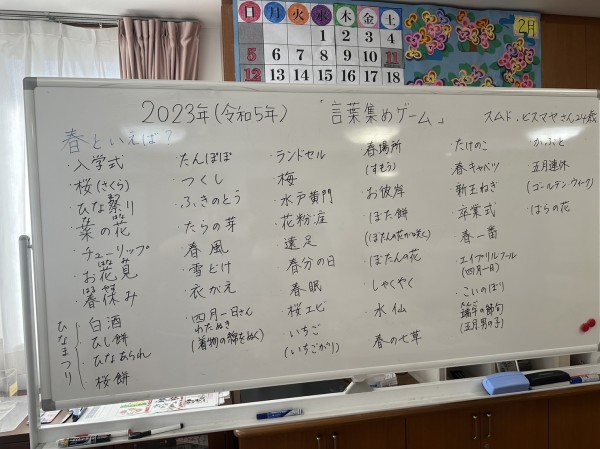 日 月 火 水 木 金 土
1 2 3 4
5 6 7 8 9 10 11
12 13 14 15 16 17 18
2月
2023年(令和5年) 「言葉集めゲーム」 スムド・ビスマヤさん24歳
春といえば?
・入学式
・桜(さくら)
・ひな祭り
・菜の花
・チューリップ
・お花見
・春休み
ひなまつり
・白酒
・ひし餅
・ひなあられ
・桜餅
・たんぽぽ
・つくし
・ふきのとう
・たらの芽
・春風
・雪どけ
・衣がえ
・四月一日さん
わたぬき
(着物の綿をぬく)
・ランドセル
・梅
・水戸黄門
・花粉症
・遠足
・春分の日
・春眠
・桜エビ
・いちご
(いちごがり)
・春場所
(すもう)
・お彼岸
・ぼた餅
(ぼたんの花が咲く)
・ぼたんの花
・しゃくやく
・水仙
・春の七草
・たけのこ
・春キャベツ
・新玉ねぎ
・卒業式
・春一番
・エイプリルフール
(四月一日)
・こいのぼり
・端午の節句
(五月男の子)
・かぶと
・五月連休
(ゴールデンウィーク)
・ばらの花